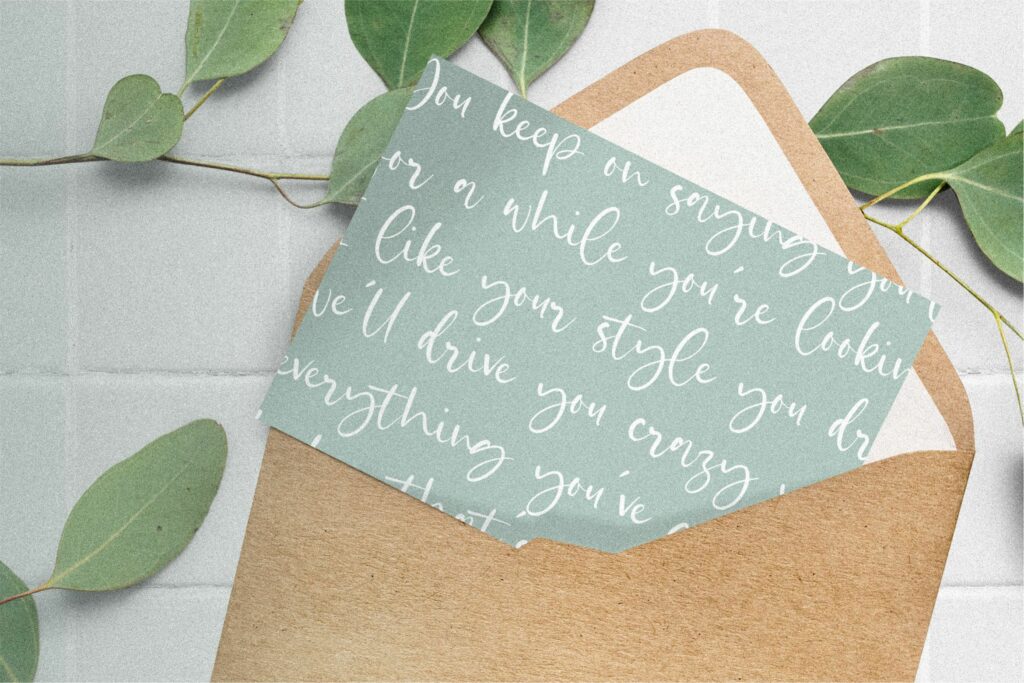 You keep on saying you
or a while you're lookin
I like your style you dr
we'll drive you crazy
everything you've
that's